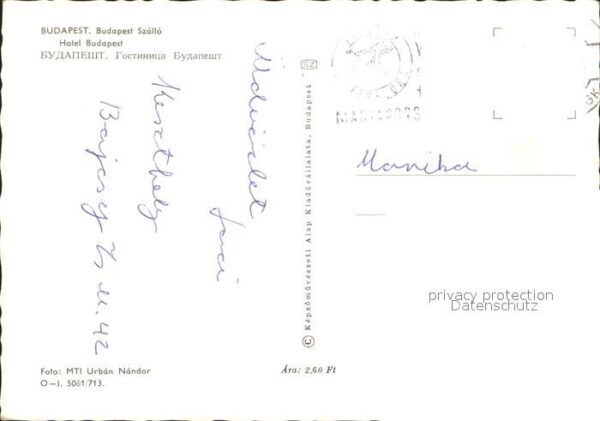 BUDAPEST. Budapest Szálló
Hotel Budapest
БУДАПЕШТ. Гостиница Будапешт
Üdvözlet
Jani
Keszthely
Bajcsy Zs u. 42
Foto: MTI Urbán Nándor
O—I. 5061/713.
Ára: 2,60 Ft
© Képzőművészeti Alap Kiadóvállalata, Budapest
MAGYARORS
Marika
privacy protection
Datenschutz